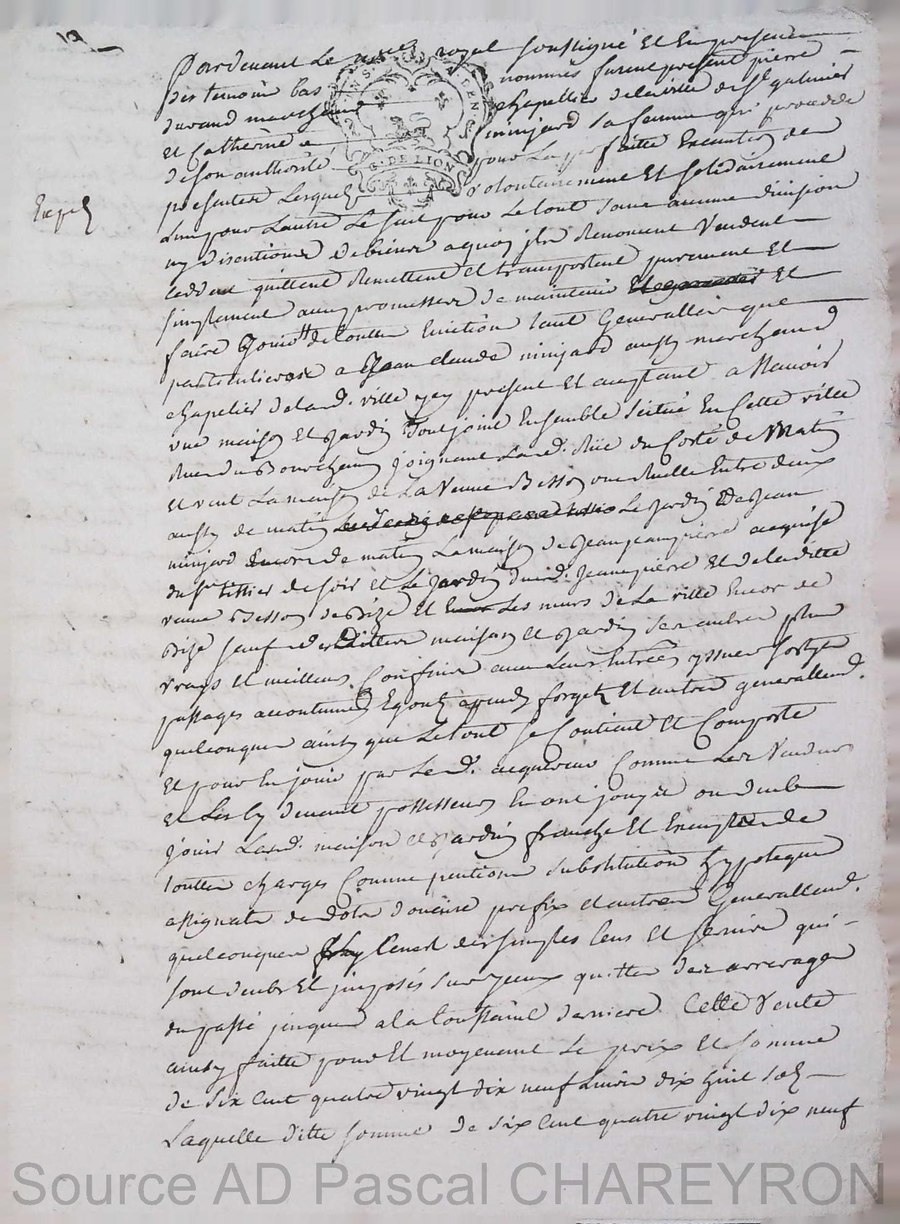 Pardevant Le nore royal soussigné Et En presence
Des temoins bas nommés furent present pierre
durand marchand chapellier delaville de St galmier
Et Catherine minjard sa femme qui procede
de son authorité pour La parfaitte Execution de
presentes Lesquels volontairement Et solidairement
Lun pour Lautre Le seul pour Le tout sans aucune division
ny discution de biens a quoy ils Renoncent Vendent
ceddent quittent Remettent et transportent purement Et
simplement avec promesse de maintenir Et
faire Jouir de toutte Eviction tant Generalle que
particuliere a Jean claude minjard aussy marchand
chapelier delad. ville icy present Et acceptant a scavoir
une maison Et Jardin tout joint Ensemble scitué En Cette ville
Rue du Joignant Lad. Rue du Costé de Matin
et vent La maison de La Veuve Besson une Ruelle Entre deux
aussy de matin Le Jardin de Jean
minjard Encore de matin La maison de Jean acquise
du Sr tissier de soir et Le Jardin dud. Jeanpierre Et delad itte
veuve Besson de Bize Et Les murs de La ville Encor de
Bize sauf desdittes maison et Jardin ses autres plus
vrays et meilleurs Confins avec Leurs Entrées yssues
passages accoutumés Egouts et autres generallemt.
quelconques ainsy que Le tout se Contient Et Comporte
Et pour En jouir par Le d. acquereur Comme Les Vendeurs
et Les cy devant possesseurs En ont jouyt ou deub
jouir Lad. maison et Jardin franche Et Exempte de
touttes charges Comme pentions substitution hypoteque
assignats de dots douaire prefix et autres Generallemt.
quelconques Cenest des simples Cens Et servis qui
sont deubs Et jmposés sur yceux quitte des arrerages
du passé jusques a la toussaint derniere Cette Vente
ainsy faitte pour Et moyenant Le prix et somme
de six cent quatre vingt dix neuf Livres dix huit sols
Laquelle ditte somme de six Cent quatre vingt dix neuf
G. DE LION
Source AD Pascal CHAREYRON